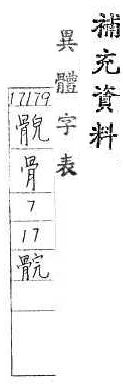 補充資料
異體字表
17179
䯘
骨
7
17
骯